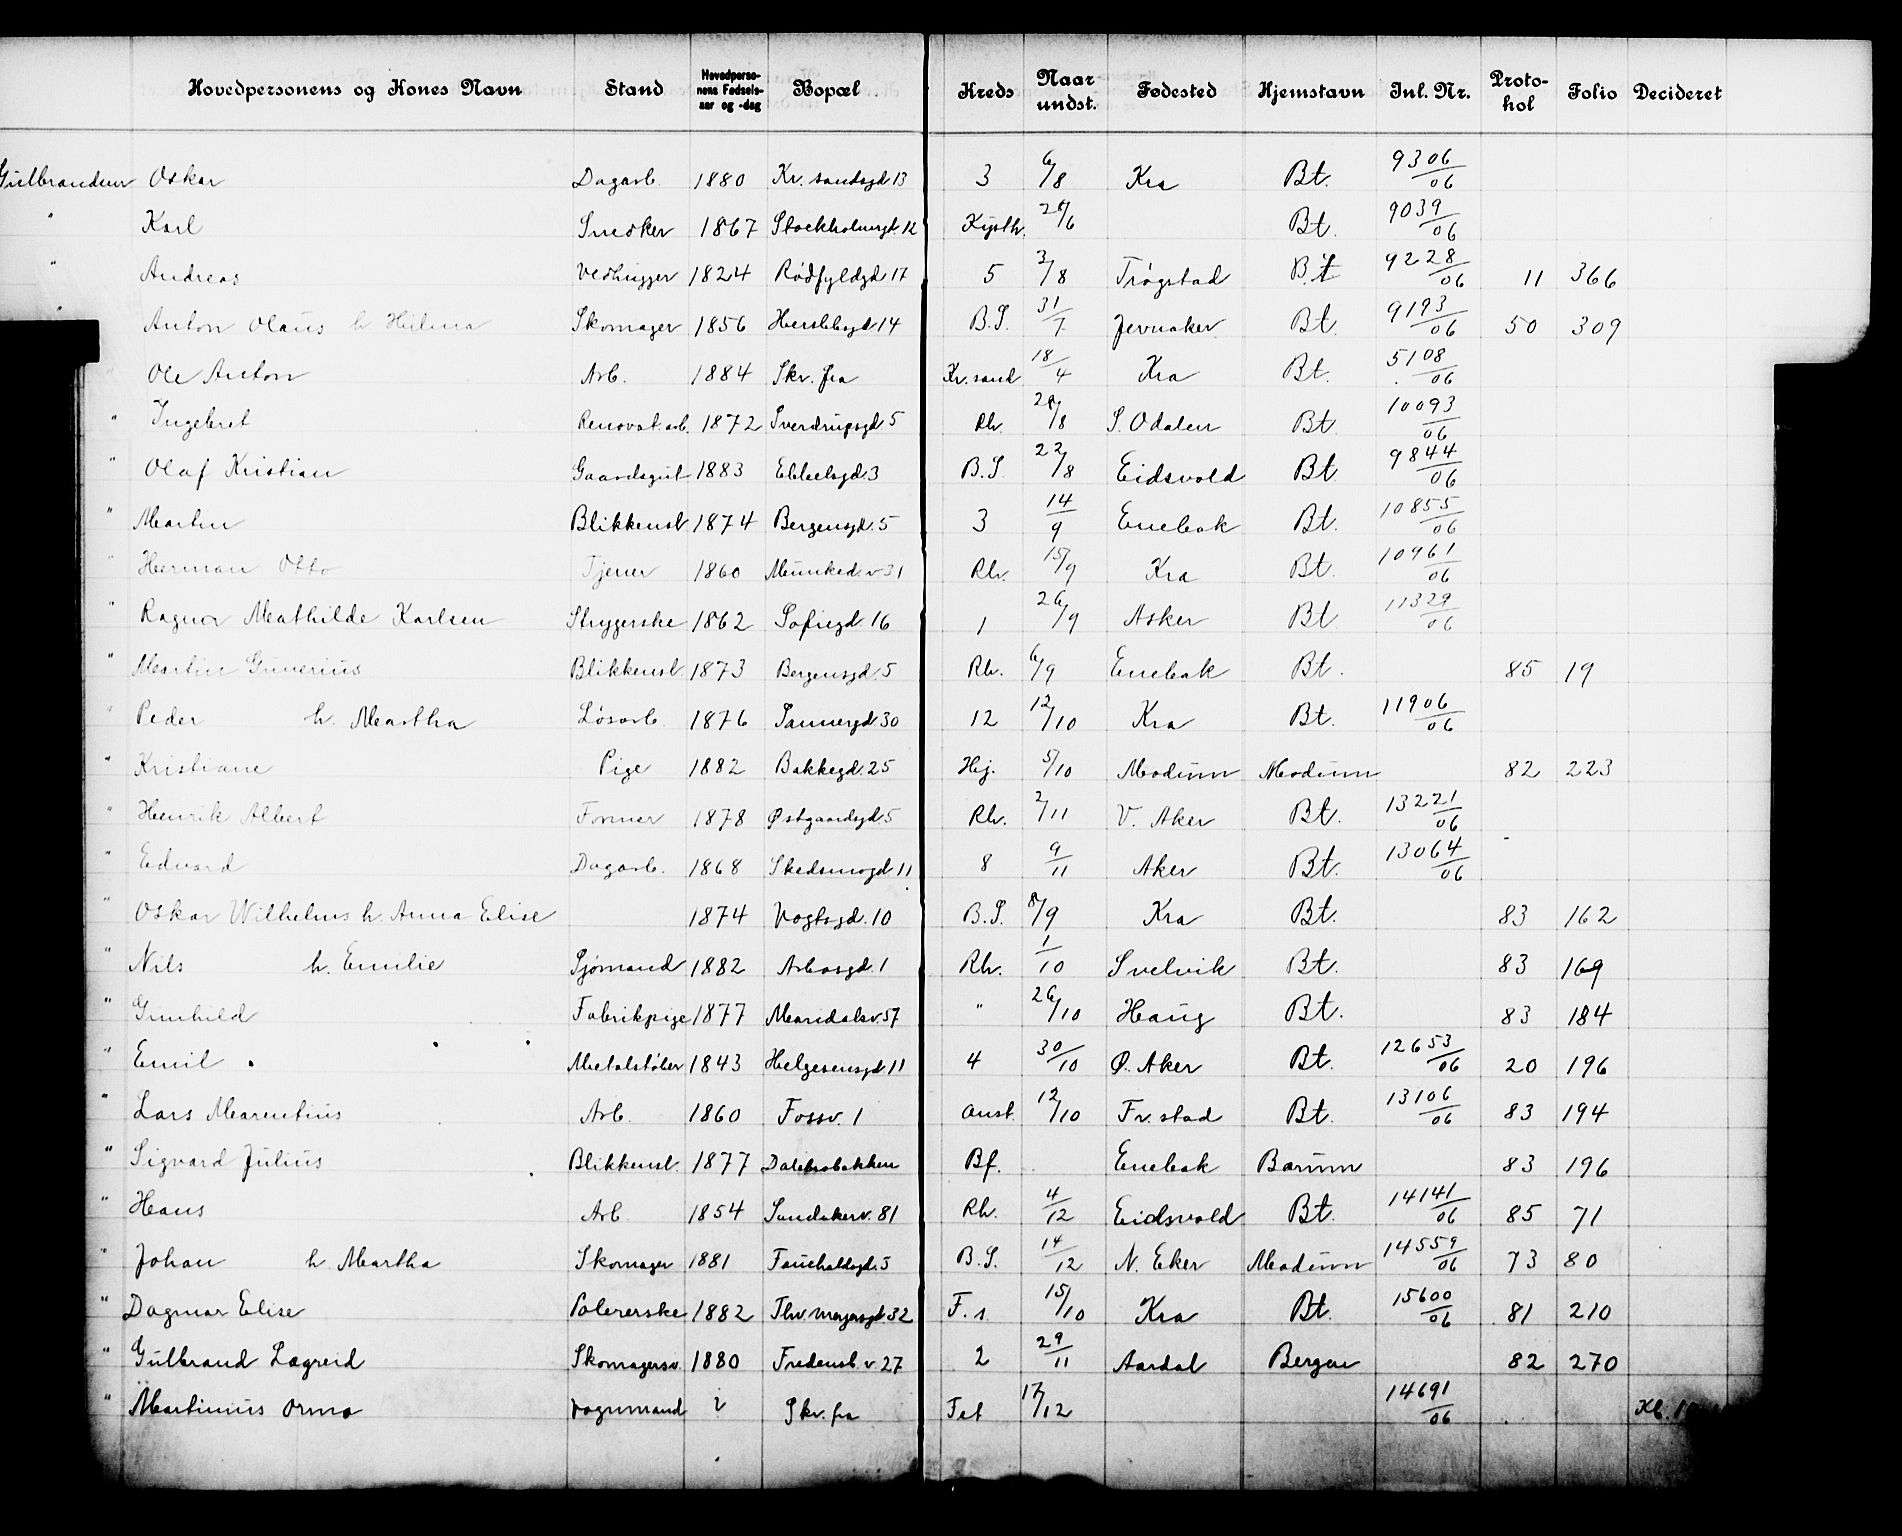 Hovedpersonens og Kones Navn Stand Hovedpersonens Fødselsaar og -dag Bopæl Kreds Naar undst. Fødested Hjemstavn Inl. Nr. Protokol Folio Decideret
Gulbrandsen Oskar Dagarb. 1880 Kr. sandsgd 13 3 6/8 Kra Bt. 9306/06
" Karl Snedker 1867 Stockholmsgd. 12 26/6 Bt. 9039/06
" Andreas Vedhugger 1824 Rødfyldgd 17 5 3/8 Trøgstad Bt 9228/06 11 366
" Anton Olaus h. Hilma Skomager 1856 Herslebsgd 14 B.S. 31/7 Jevnaker Bt. 9193/06 50 309
" Ole Anton Arb. 1884 Skr. fra Kr.sand 18/4 Kra Bt. 5108/06
" Ingebret Renovat.arb. 1872 Sverdrupsgd 5 Rh. 28/8 S. Odalen Bt. 10093/06
" Olaf Kristian Gaardsgut 1883 Ebbelsgd. 3 B.S. 22/8 Eidsvold Bt. 9844/06
" Martin Blikkensl. 1874 Bergensgd. 5 3 14/9 Enebak Bt. 10855/06
" Herman Otto Tjener 1860 Munked.v 31 Rh. 15/9 Kra Bt. 10961/06
" Ragna Mathilde Karlsen Strygerske 1862 Sofiegd. 16 1 26/9 Asker Bt 11329/06
" Martin Gunerius Blikkensl. 1873 Bergensgd. 5 Rh. 6/9 Enebak Bt. 85 19
" Peder h. Martha Løsarb. 1876 Sannergd. 30 12 12/10 Kra Bt. 11906/06
" Kristiane Pige 1882 Bakkegd. 25 Hej. 5/10 Modum Modum 82 223
" Henrik Albert Former 1878 Østgaardsgd. 5 Rh. 2/11 V. Aker Bt. 13221/06
" Edvard Dagarb. 1868 Skedsmogd 11 8 9/11 Aker Bt. 13064/06
" Oskar Wilhelms h. Anna Elise 1874 Vogtsgd. 10 B.S. 8/9 Kra Bt. 83 162
" Nils h. Emilie Sjømand 1882 Arbosgd. 1 Rh. 1/10 Svelvik Bt. 83 169
" Gunhild Fabrikpige 1877 Maridalsv. 57 " 26/10 Haug Bt. 83 184
" Emil Metalstøber 1843 Helgesensgd 11 4 30/10 Ø. Aker Bt. 12653/06 20 196
" Lars Marentius Arb. 1860 Fossv. 1 Anst. 12/10 Fr.stad Bt. 13106/06 83 194
" Sigvard Julius Blikkensl. 1877 Dælebakken Bf. Enebak Bærum 83 196
" Hans Arb 1854 Sandakerv. 81 Rh. 4/12 Eidsvold Bt. 14141/06 85 71
" Johan h. Martha Skomager 1881 Fauchaldsgd. 5 B.S. 14/12 N. Eker Modum 14559/06 73 80
" Dagmar Elise Polererske 1882 Thv. Meyersgd. 32 F. s. 15/10 Kra Bt. 15600/06 81 210
" Gulbrand Lægreid Skomagersv. 1880 Fredensb.v. 27 2 29/11 Aardal Bergen 82 270
" Martinius Ormo Vognmand ? Skr. fra Fet 17/12 14691/06 Kb.